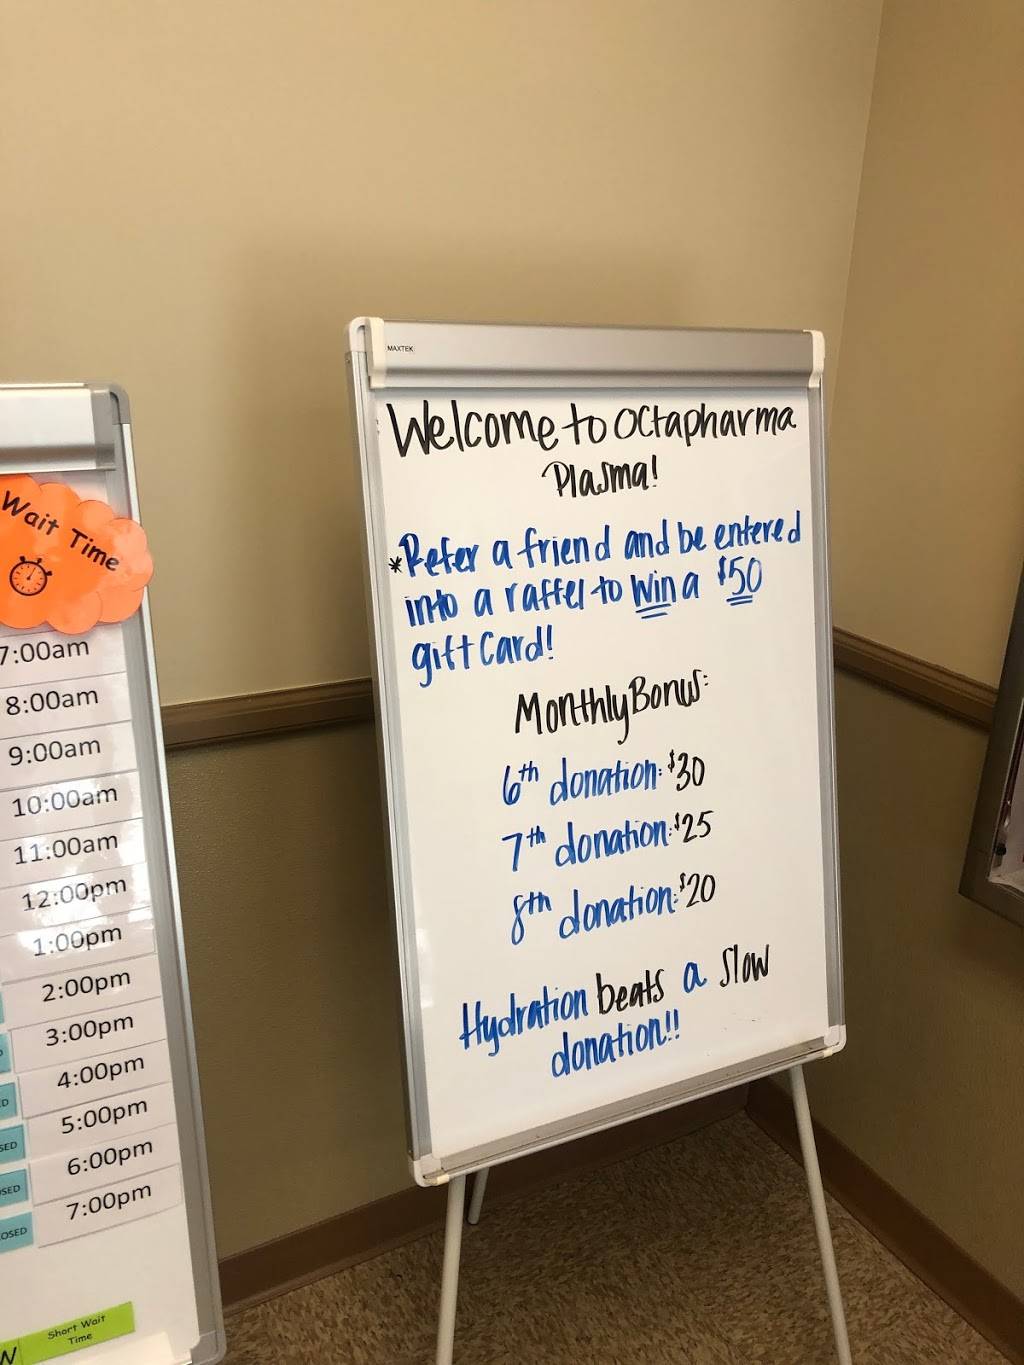 MAXTEK
Welcome to Octapharma
Plasma!
*Refer a friend and be entered
into a raffel to win a $50
gift card!
Monthly Bonus:
6th donation: $30
7th donation: $25
8th donation: $20
Hydration beats a slow
donation!!
Wait Time
7:00am
8:00am
9:00am
10:00am
11:00am
12:00pm
1:00pm
2:00pm
3:00pm
4:00pm
5:00pm
6:00pm
7:00pm
D
SED
SED
OSED
Short Wait
Time